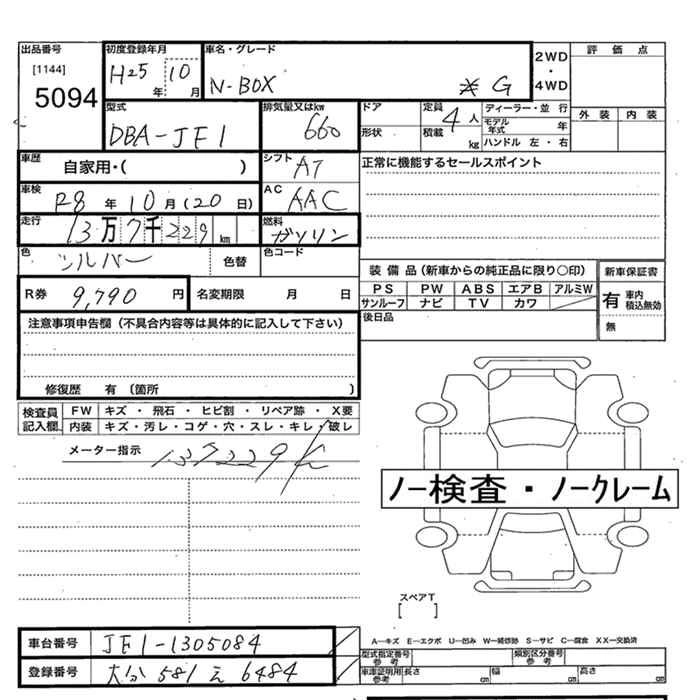 出品番号 初度登録年月 車名・グレード 2WD・4WD 評価点
[1144] 5094 H25年 10月 N-BOX G 外装 内装
型式 排気量又はkw ドア 定員 ディーラー・並行
DBA-JF1 660 4人 モデル年式 年
形状 積載 kg ハンドル 左・右
車歴 自家用・( ) シフト AT 正常に機能するセールスポイント
車検 R8年 10月 (20日) AC AAC
走行 13万7千229km 燃料 ガソリン
色 シルバー 色替 色コード
装備品(新車からの純正品に限り〇印) 新車保証書
R券 9,790円 名変期限 月 日 PS PW ABS エアB アルミW 有 車内積込無効
サンルーフ ナビ TV カワ 無
注意事項申告欄(不具合内容等は具体的に記入して下さい) 後日品
修復歴 有 (箇所 )
検査員記入欄 FW キズ・飛石・ヒビ割・リペア跡・X要
内装 キズ・汚レ・コゲ・穴・スレ・キレ・破レ
メーター指示 137229K
ノー検査・ノークレーム
スペアT
[ ]
A―キズ E―エクボ U―凹み W―補修跡 S―サビ C―腐食 XX―交換済
車台番号 JF1-1305084 型式指定番号 参考 類別区分番号 参考
登録番号 大分 581 え 6484 車庫証明用参考 長さ cm 幅 cm 高さ cm